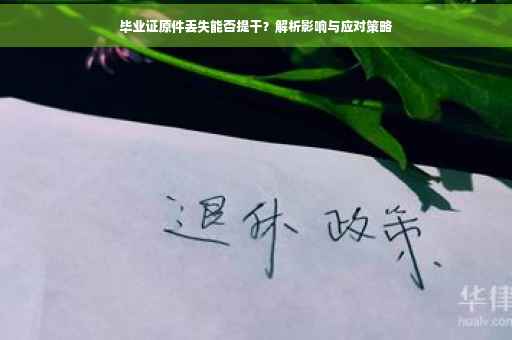 毕业证原件丢失能否提干？解析影响与应对策略
退休 政策
华律
hualv.com